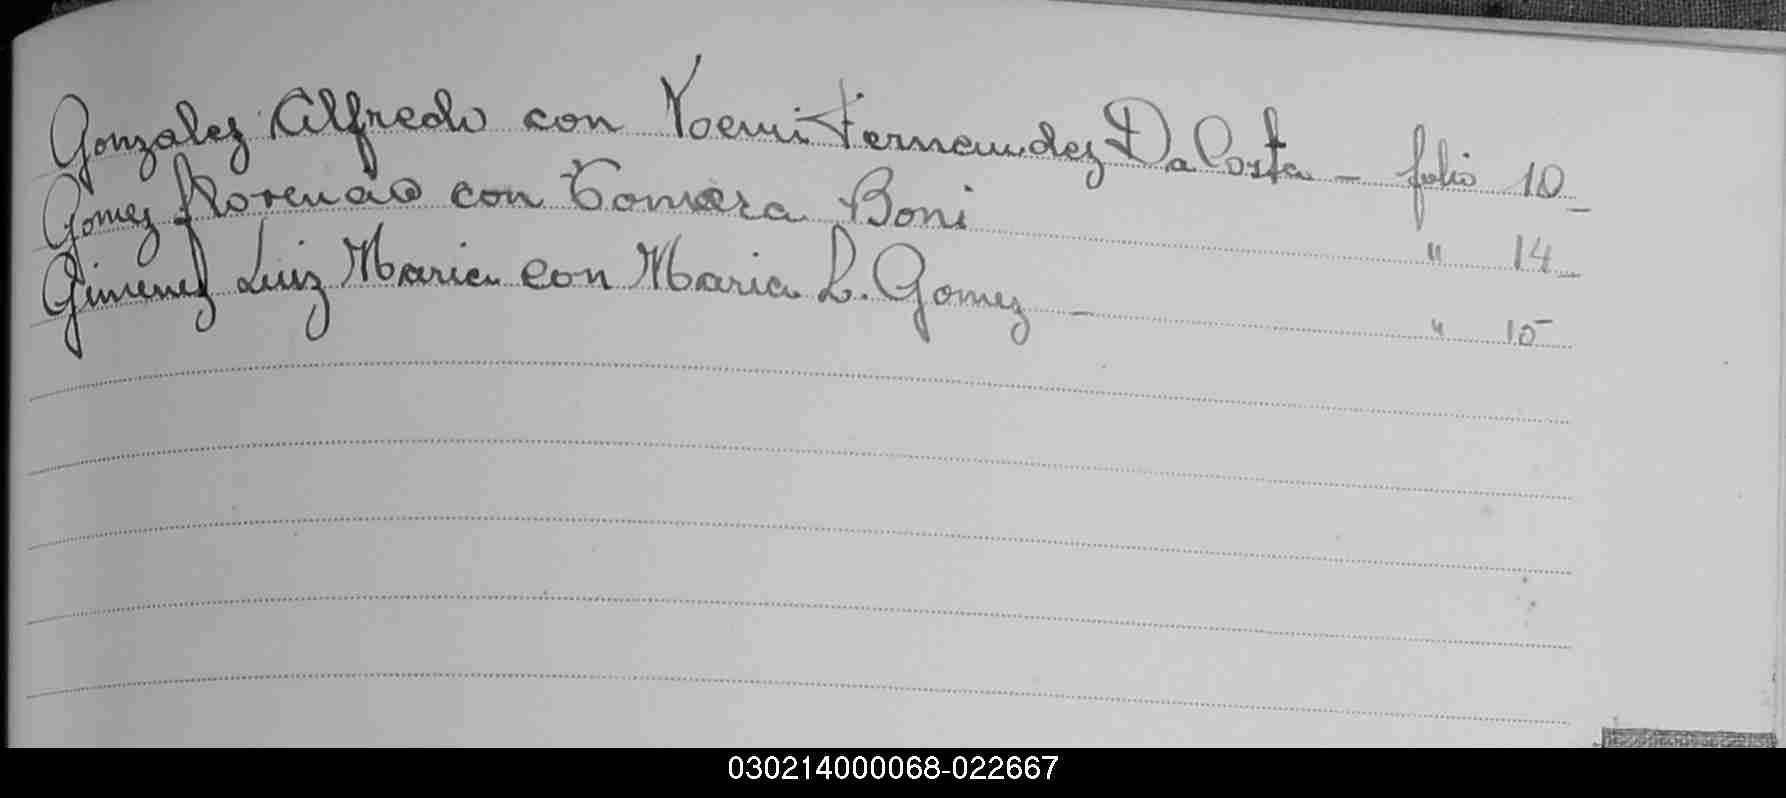 Gonzalez Alfredo con Noemi Fernandez Da Costa - folio 10
Gomez Florencio con Tomasa Boni " 14
Gimenez Luiz Maria con Maria L. Gomez - " 15
030214000068-022667